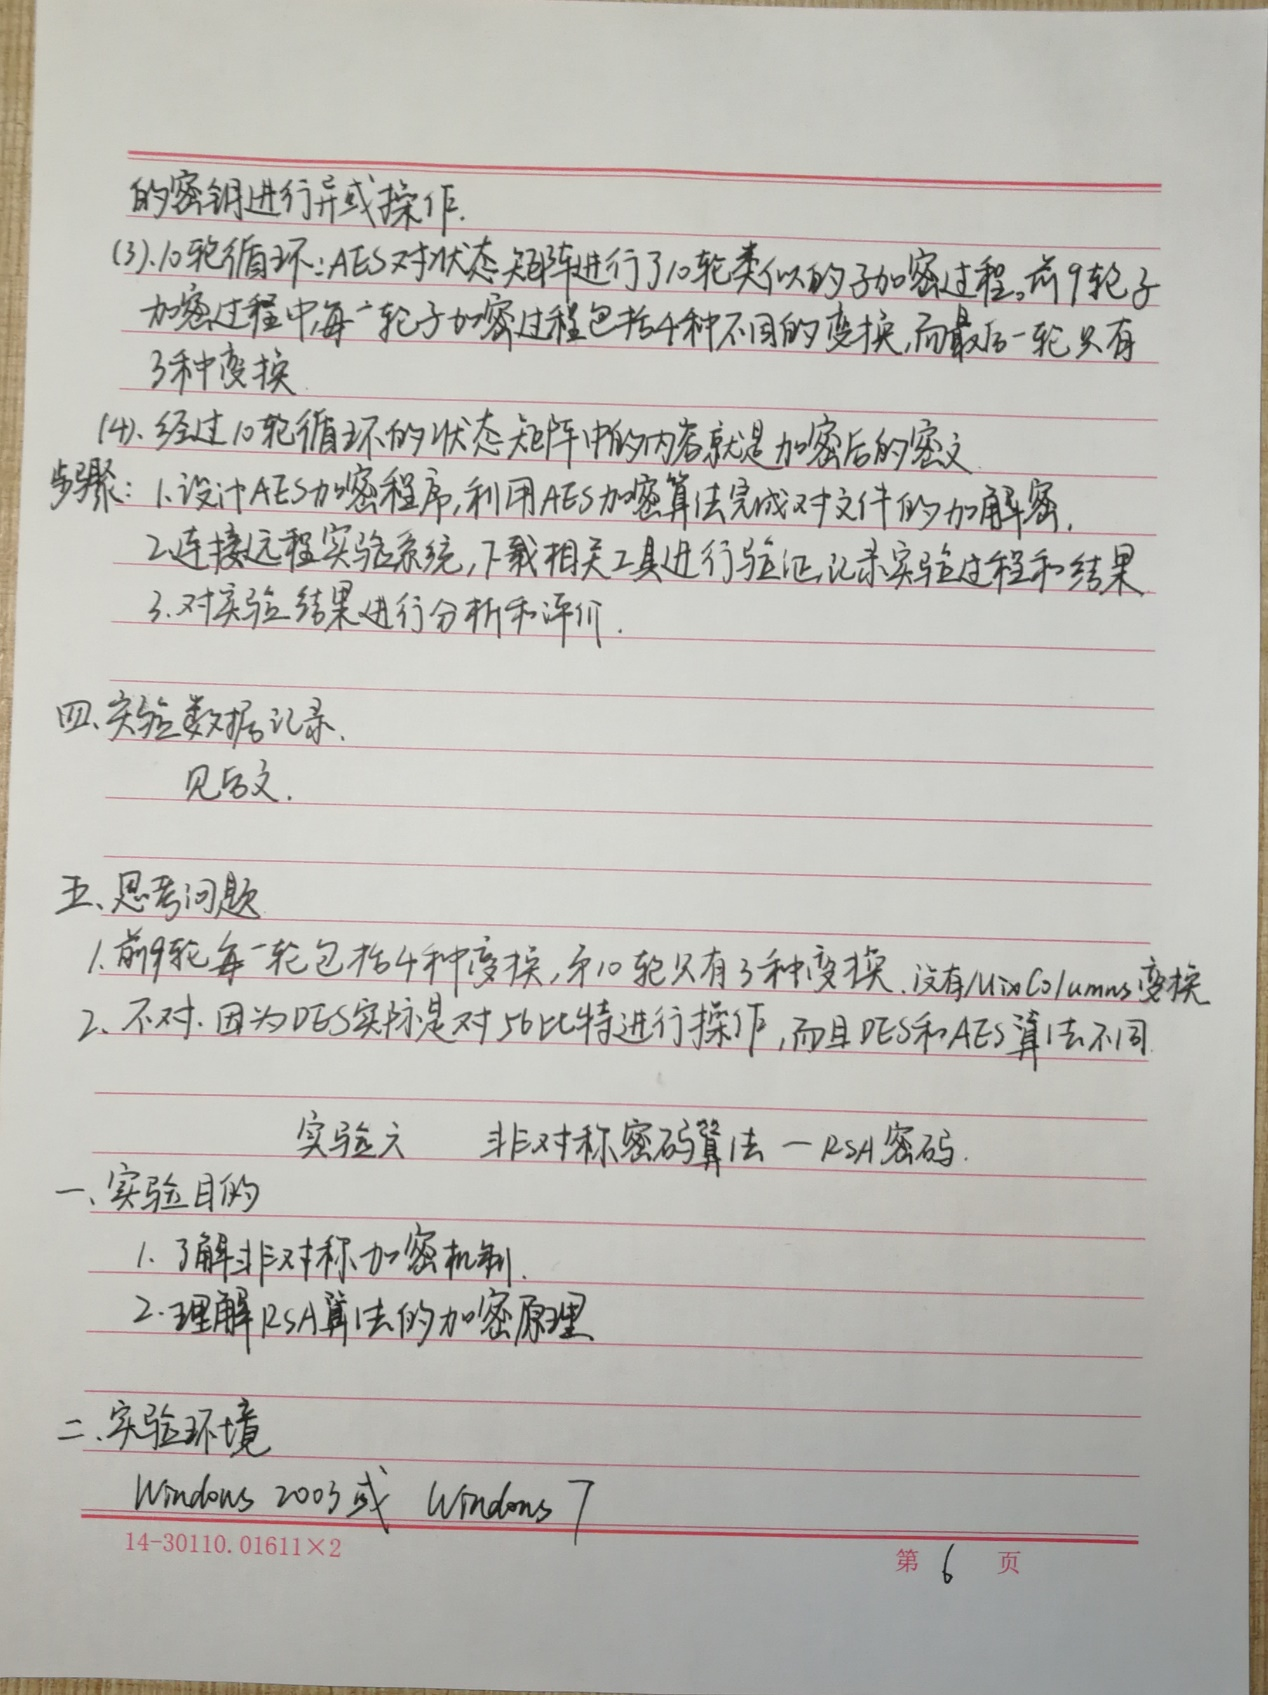 的密钥进行异或操作.
(3).10轮循环:AES对状态矩阵进行了10轮类似的子加密过程。前9轮子
加密过程中,每一轮子加密过程包括4种不同的变换,而最后一轮只有
3种变换.
(4).经过10轮循环的状态矩阵中的内容就是加密后的密文.
步骤:1.设计AES加密程序,利用AES加密算法完成对文件的加解密.
2.连接远程实验系统,下载相关工具进行验证,记录实验过程和结果
3.对实验结果进行分析和评价.
四、实验数据记录.
见后文.
五、思考问题
1.前9轮每一轮包括4种变换,第10轮只有3种变换.没有MixColumns变换
2.不对.因为DES实际是对56比特进行操作,而且DES和AES算法不同.
实验六 非对称密码算法—RSA密码.
一、实验目的
1.了解非对称加密机制.
2.理解RSA算法的加密原理
二、实验环境
Windows 2003或 Windows 7
14-30110.01611×2
第 6 页